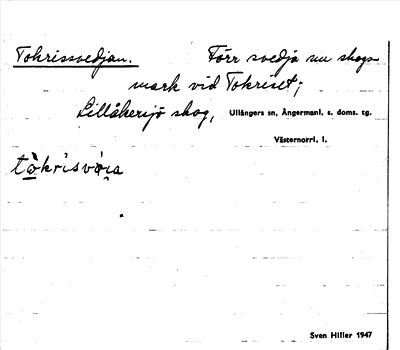 Tokrissvedjan. Förr svedja nu skogs
mark vid Tokriset;
Lillåkersjö skog, Ullångers sn, Ångermanl. s. doms. tg.
Västernorrl. l.
Sven Hiller 1947